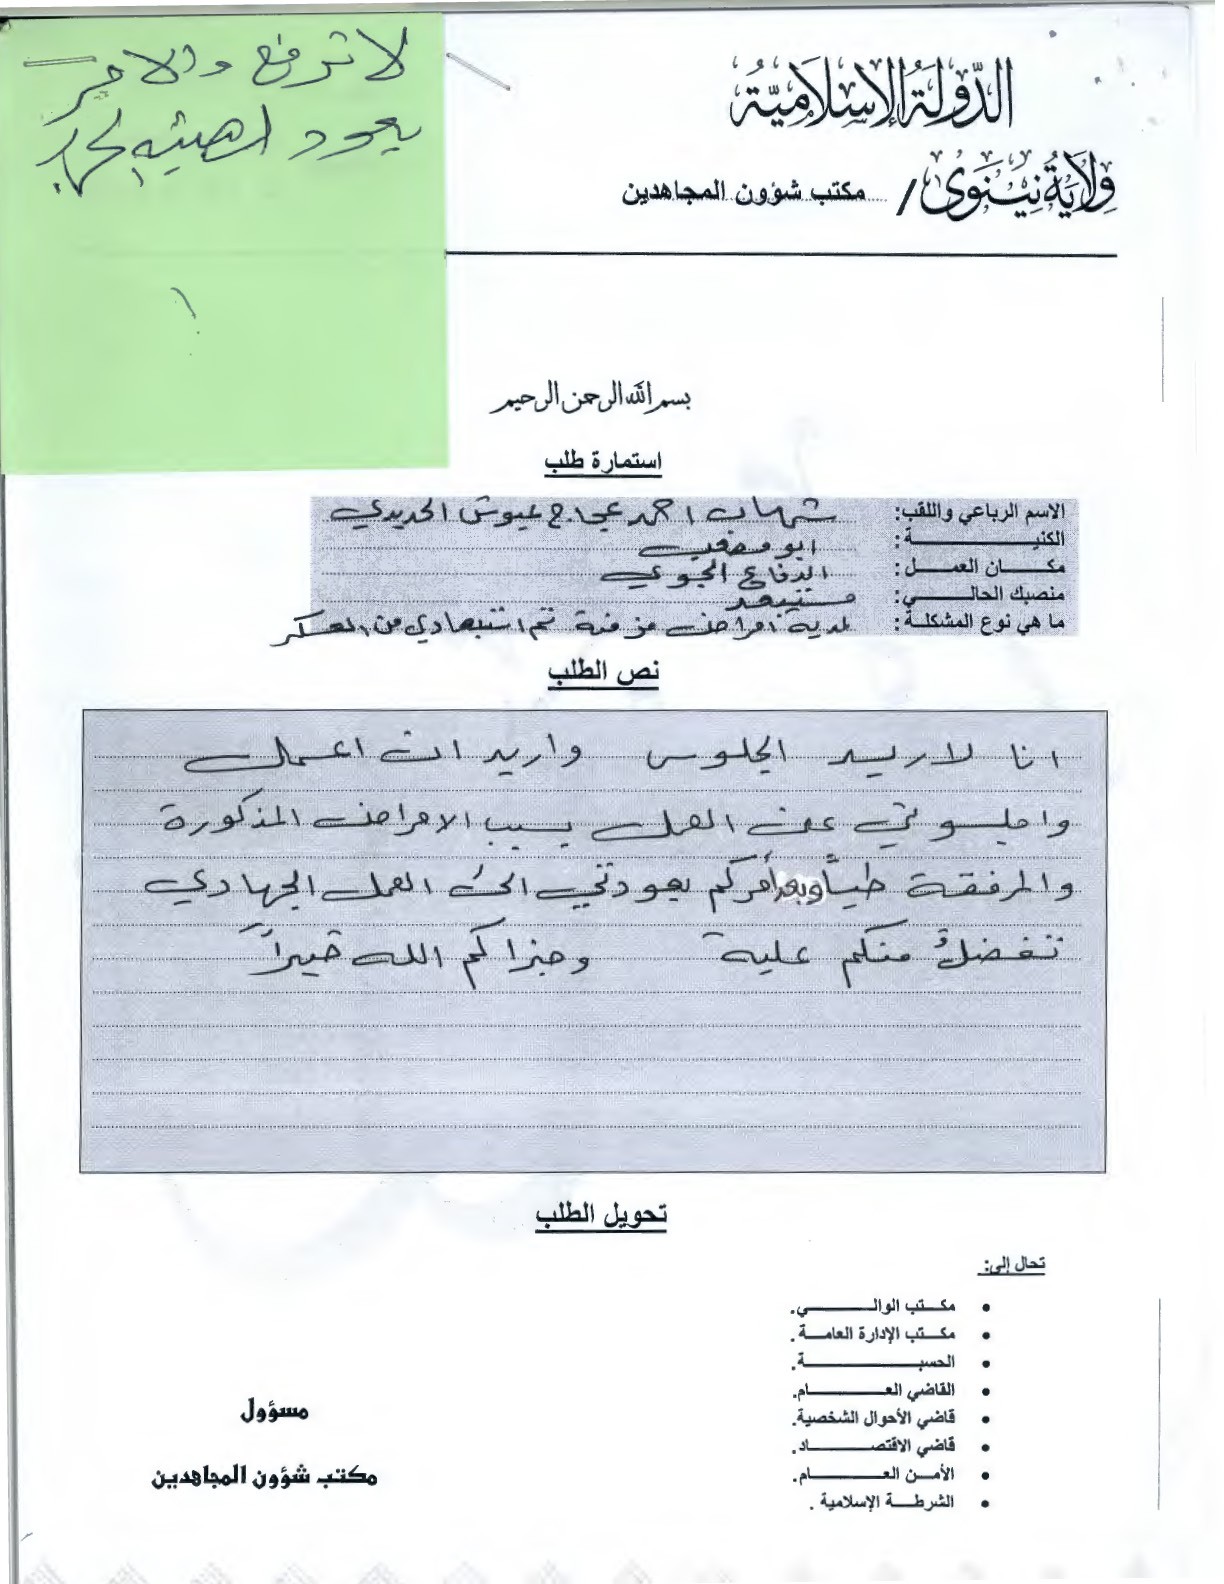 لا ترفع والامر
يعود
الدولة الإسلامية
ولاية نينوى / مكتب شؤون المجاهدين
بسم الله الرحمن الرحيم
استمارة طلب
الاسم الرباعي واللقب: شهاب احمد عجاج عيوش الحديدي
الكنية: ابو مصعب
مكان العمل: الدفاع الجوي
منصبك الحالي: مستبعد
ما هي نوع المشكلة: لديه امراض مزمنة تم استبعادي من المعسكر
نص الطلب
انا لا اريد الجلوس واريد ان اعمل
واجلسوني عن العمل بسبب الامراض المذكورة
والمرفقة طياً وبعد أمركم بعودتي الى العمل الجهادي
تفضلُ منكم علية وجزاكم الله خيراً
تحويل الطلب
تحال إلى:
• مكتب الوالي.
• مكتب الإدارة العامة.
• الحسبة.
• القاضي العام.
• قاضي الأحوال الشخصية.
• قاضي الاقتصاد.
• الأمن العام.
• الشرطة الإسلامية .
مسؤول
مكتب شؤون المجاهدين